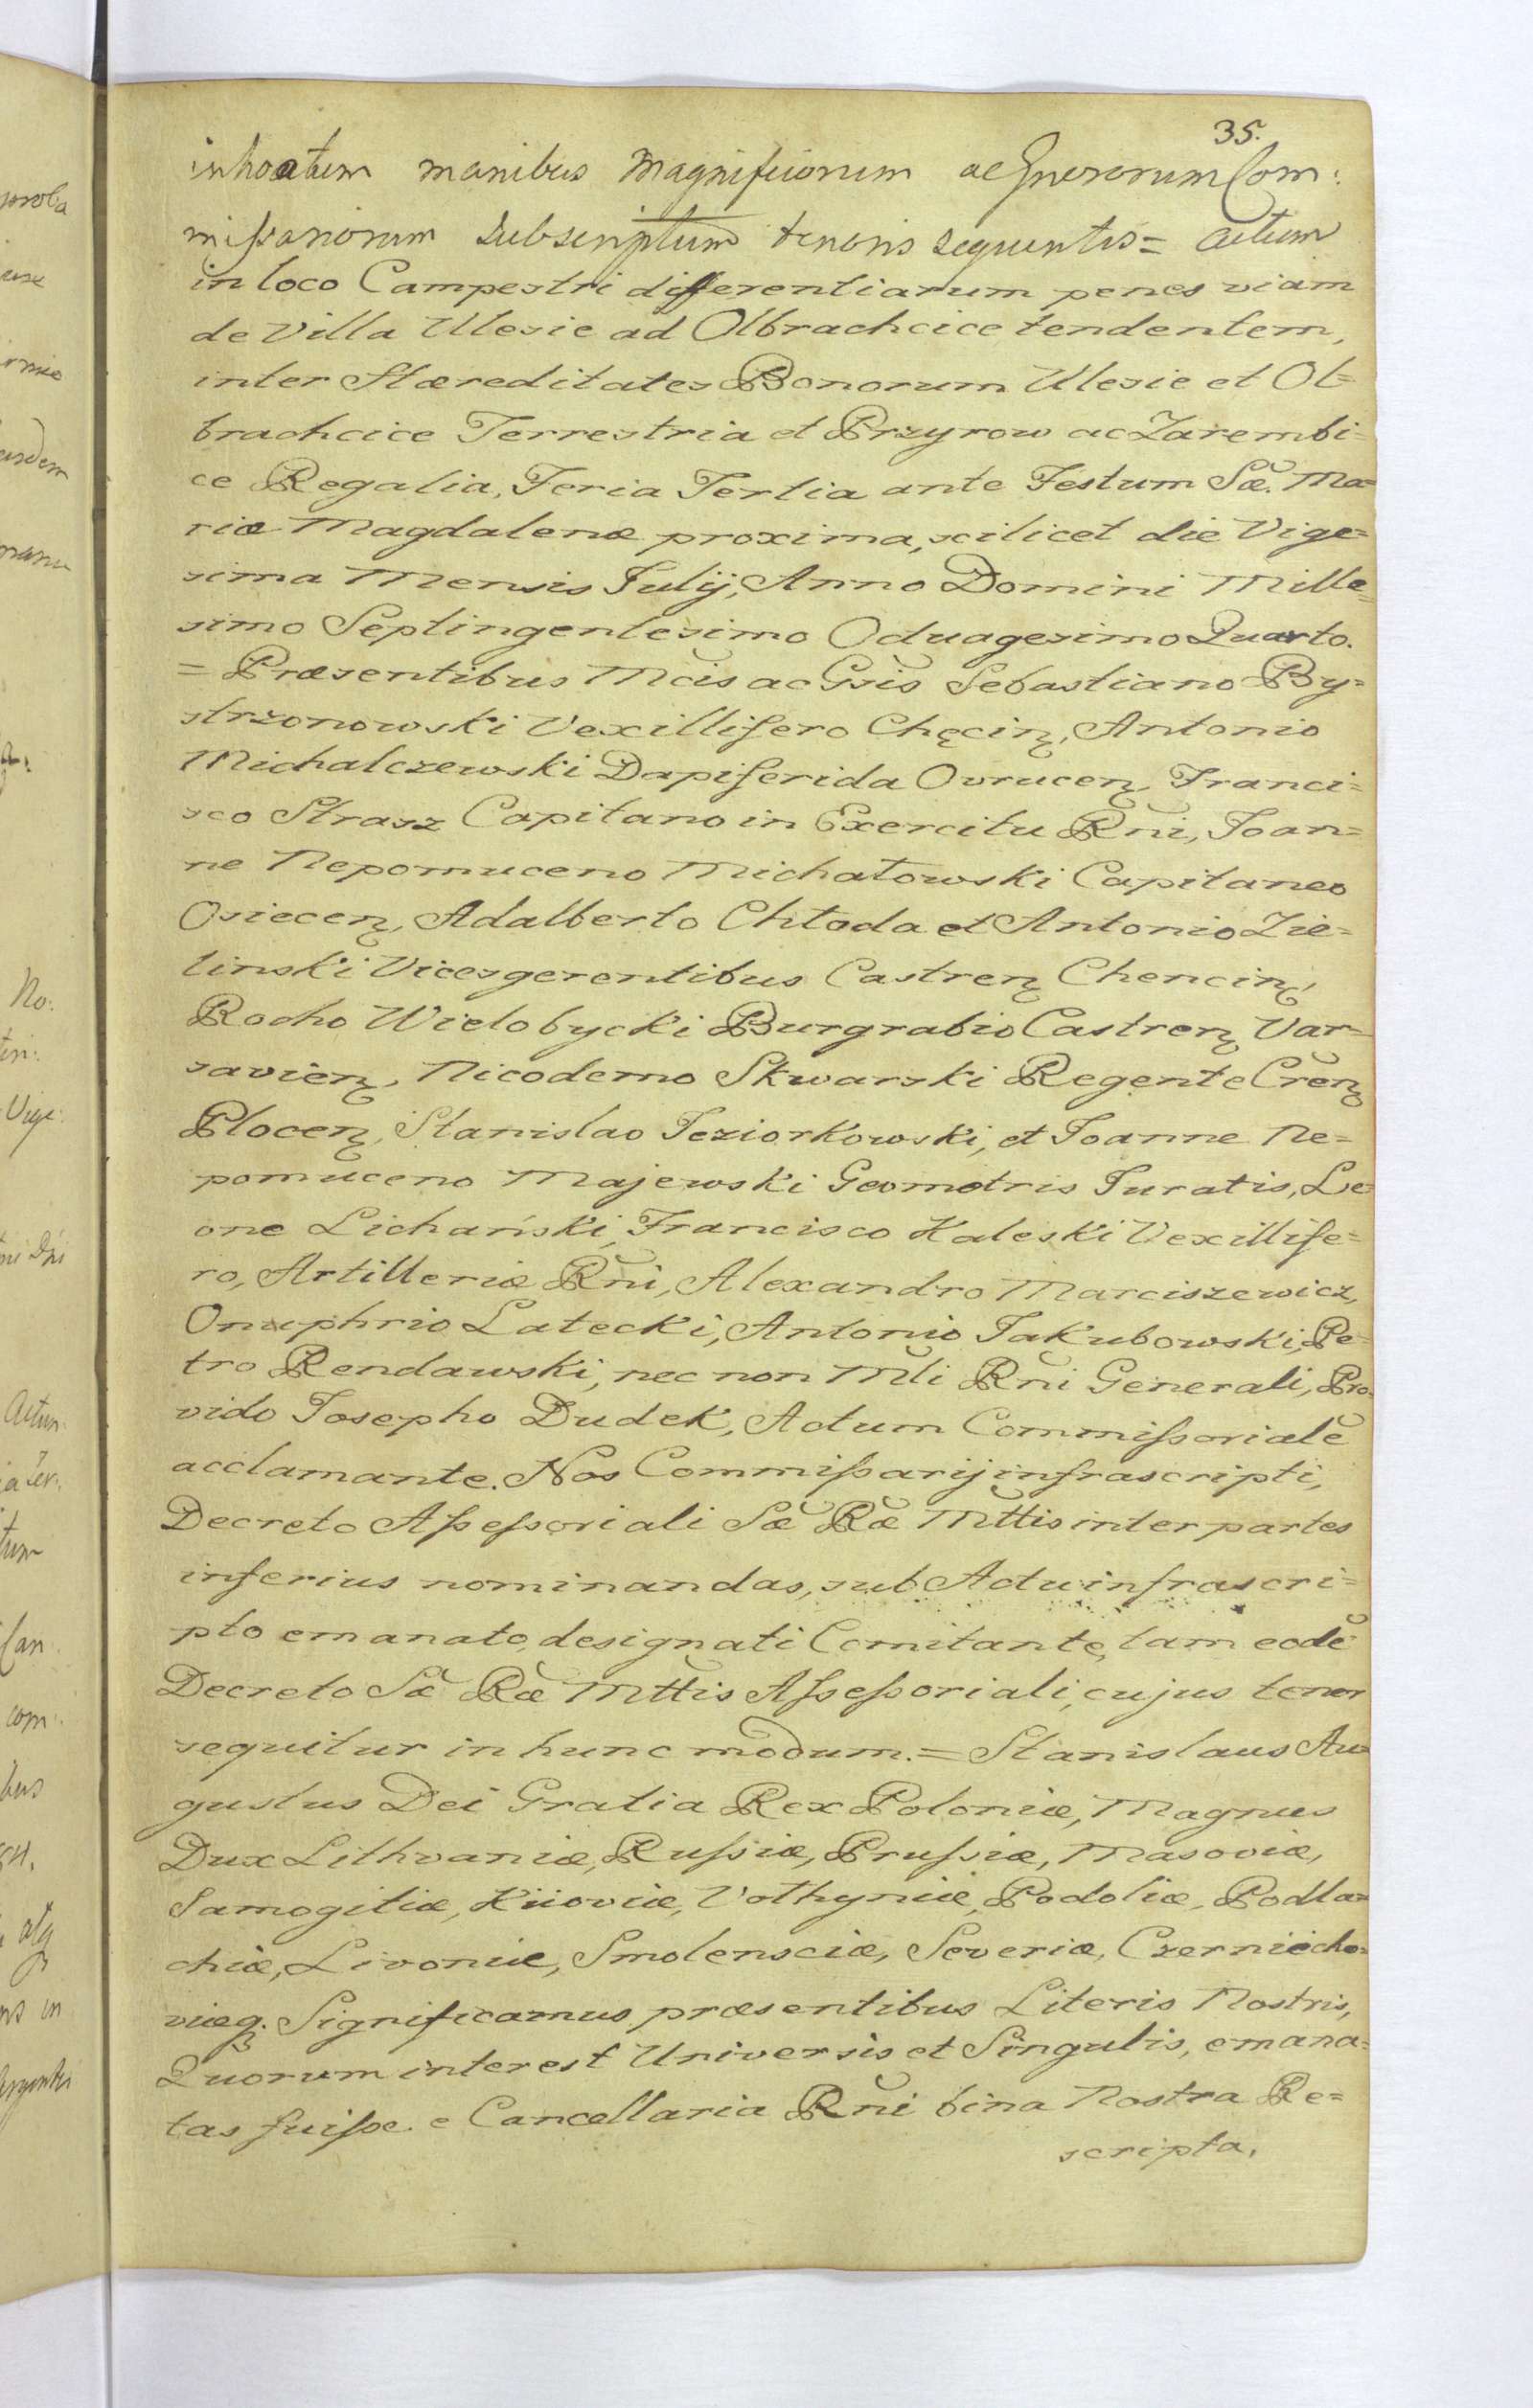 35.
inhoatum manibus Magnificorum ac Gnerorum Com:
missariorum subscriptum tenoris sequentis = Actum
in loco Campestri differentiarum penes viam
de Villa Ulesie ad Olbrachcice tendentem,
inter Hæreditates Bonorum Ulesie et Ol=
brachcice Terrestria et Przyrow ac Zarembi=
ce Regalia, Feria Tertia ante Festum Sæ. Ma=
riæ Magdalenæ proxima, scilicet die Vige=
sima Mensis Julij, Anno Domini Mille=
simo Septingentesimo Octuagesimo Quarto.
= Præsentibus Mcis ac Gsis Sebastiano By=
strzonowski Vexillifero Chęcin, Antonio
Michalczewski Dapiferida Ovrucen, Franci=
sco Strasz Capitano in Exercitu Rni, Joan=
ne Nepomuceno Michałowski Capitaneo
Osiecen, Adalberto Chłoda et Antonio Zie=
linski Vicesgerentibus Castren Chencin,
Rocho Wielobycki Burgrabio Castren Var=
savien, Nicodemo Skwarski Regente Cren
Plocen, Stanislao Jeziorkowski, et Joanne Ne=
pomuceno Majewski Geometris Juratis, Le=
one Lichański, Francisco Kaleski Vexillife=
ro, Artilleriæ Rni, Alexandro Marciszewicz,
Onuphrio Latecki, Antonio Jakubowski, Pe=
tro Rendawski, nec non Mli Rni Generali, Pro=
vido Josepho Dudek, Actum Commissoriale
acclamante. Nos Commissarij infrascripti,
Decreto Assessoriali Sæ Ræ Mttis inter partes
inferius nominandas, sub Actu infrascri=
pto emanato, designati Comitante, tam eodē
Decreto Sæ Ræ Mttis Assessoriali, cujus tenor
sequitur in hunc modum. = Stanislaus Au=
gustus Dei Gratia Rex Poloniæ, Magnus
Dux Lithvaniæ, Russiæ, Prussiæ, Masoviæ,
Samogitiæ, Kiioviæ, Volhyniæ, Podoliæ, Podla=
chiæ, Livoniæ, Smolensciæ, Severiæ, Czerniecho=
viæq. Significamus præsentibus Literis Nostris,
Quorum interest Universis et Singulis, emana=
tas fuisse e Cancellaria Rni bina Nostra Re=
scripta,